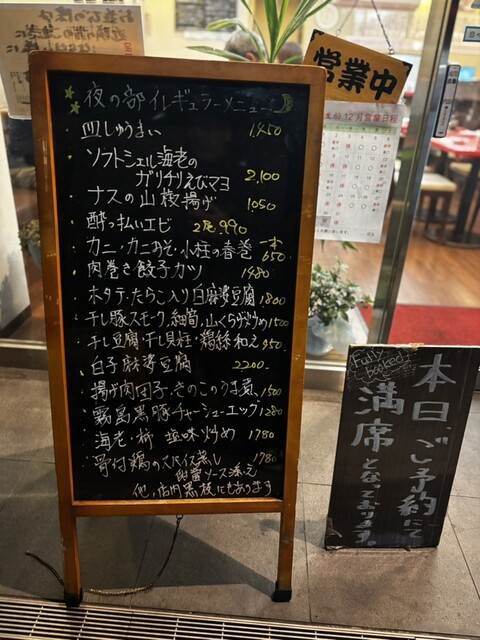 夜の部イレギュラーメニュー
皿しゅうまい 1450
ソフトシェル海老の
ガリチリえびマヨ 2,100
ナスの山椒揚げ 1,050
酔っ払いエビ 2尾 990
カニ・カニみそ・小柱の春巻 一本 650
肉巻き餃子カツ 1480
ホタテ・たらこ入り白麻婆豆腐 1800
干し豚スモーク、細筍、山くらげ炒め 1500
干し豆腐・干し貝柱・鶏絲和え 950
白子麻婆豆腐 2200
揚げ肉団子・きのこのうま煮 1500
霧島黒豚チャーシューエッグ 1280
海老・柿 塩味炒め 1780
骨付鶏のスパイス蒸し 1780
ソース添え
他、店内黒板にもあります
営業中
12月営業日程
Fully booked
本日、ご予約にて
満席となっております。